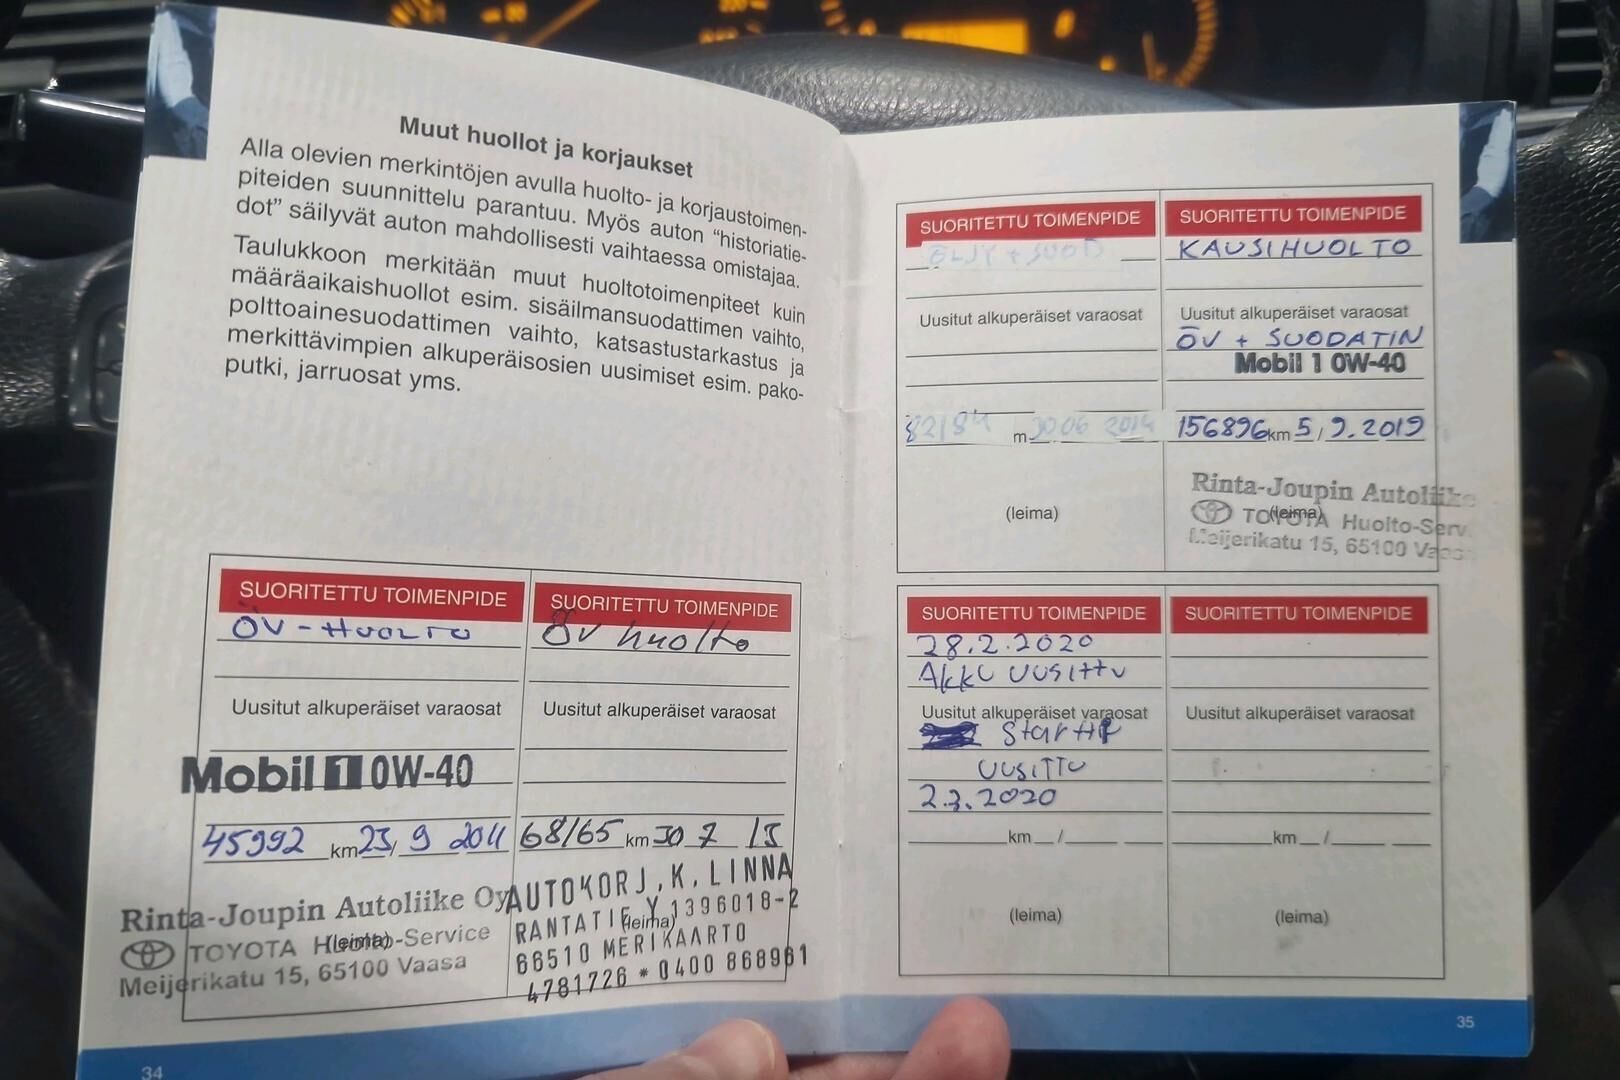 Muut huollot ja korjaukset
Alla olevien merkintöjen avulla huolto- ja korjaustoimen-
piteiden suunnittelu parantuu. Myös auton “historiatie-
dot” säilyvät auton mahdollisesti vaihtaessa omistajaa.
Taulukkoon merkitään muut huoltotoimenpiteet kuin
määräaikaishuollot esim. sisäilmansuodattimen vaihto,
polttoainesuodattimen vaihto, katsastustarkastus ja
merkittävimpien alkuperäisosien uusimiset esim. pako-
putki, jarruosat yms.
SUORITETTU TOIMENPIDE
ÖV - HUOLTO
Uusitut alkuperäiset varaosat
Mobil 1 0W-40
45992 km 23/ 9 2011
(leima)
Rinta-Joupin Autoliike Oy
TOYOTA Huolto-Service
Meijerikatu 15, 65100 Vaasa
SUORITETTU TOIMENPIDE
Öv huolto
Uusitut alkuperäiset varaosat
68165 km 30 7 13
(leima)
AUTOKORJ. K. LINNA
RANTATIE Y 1396018-2
66510 MERIKAARTO
4781726 * 0400 868961
34
SUORITETTU TOIMENPIDE
ÖLJY + SUOD
Uusitut alkuperäiset varaosat
82184 m 30 06 2014
(leima)
SUORITETTU TOIMENPIDE
KAUSIHUOLTO
Uusitut alkuperäiset varaosat
ÖV + SUODATIN
Mobil 1 0W-40
156896 km 5/ 9. 2019
(leima)
Rinta-Joupin Autoliike
TOYOTA Huolto-Serv.
Meijerikatu 15, 65100 Vaas
SUORITETTU TOIMENPIDE
28.2.2020
AKKU UUSITTU
Uusitut alkuperäiset varaosat
Startti
UUSITTU
2.3.2020
km /
(leima)
SUORITETTU TOIMENPIDE
Uusitut alkuperäiset varaosat
km /
(leima)
35